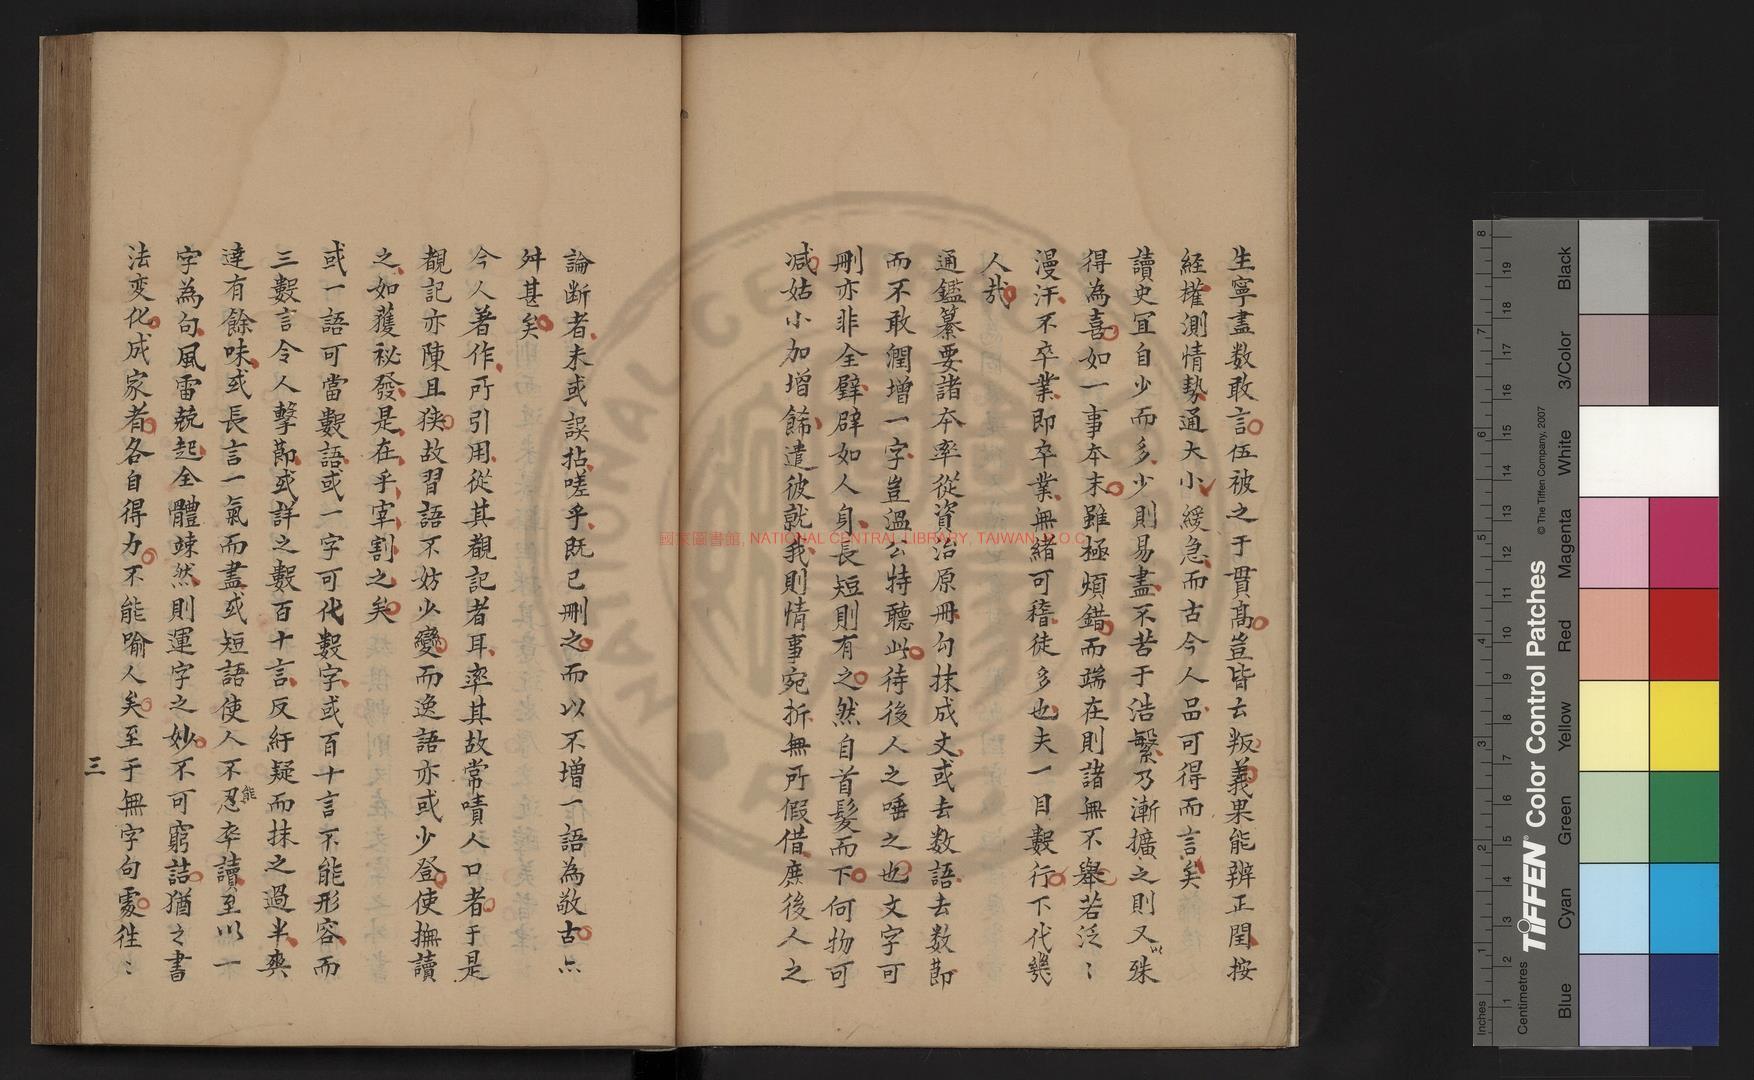 生寧盡数敢言伍被之于貫髙豈皆云叛義果能辨正閏按
経㩁測情勢通大小緩急而古今人品可得而言矣
讀史冝自少而多少則易盡不苦于浩繫乃漸擴之則又以殊
得為喜如一事夲末雖極煩錯而端在則諸無不舉若泛〻
漫汗不卒業即卒業無緒可稽徒多也夫一目數行下代㡬
人㦲
通鑑纂要諸夲率從資治原冊勾抹成文或去数語去数莭
而不敢潤增一字豈温公特聽此待後人之唾之也文字可
刪亦非全璧辟如人身長短則有之然自首髮而下何物可
减姑小加增餙遣彼就我則情事宛折無所假借庶後人之
論断者未或誤拈嗟乎既已刪之而以不增一語為敬古㸃
舛甚矣
今人著作所引用從其覩記者耳率其故常嘖人口者于是
覩記亦陳且狭故習語不妨少變而逸語亦或少登使撫讀
之如獲祕發是在乎宰割之矣
或一語可當數語或一字可代數字或百十言不能形容而
三數言令人擊莭或詳之數百十言反紆疑而抹之過半爽
逹有餘味或長言一氣而盡或短語使人不忍能卒讀至以一
字為句風雷兢起全體竦然則運字之妙不可窮詰猶之書
法变化成家者各自得力不能喻人矣至于無字句䖏徃〻
三
國家圖書館, NATIONAL CENTRAL LIBRARY, TAIWAN, R.O.C
TIFFEN® Color Control Patches
© The Tiffen Company, 2007
Inches
Centimetres
Blue
Cyan
Green
Yellow
Red
Magenta
White
3/Color
Black